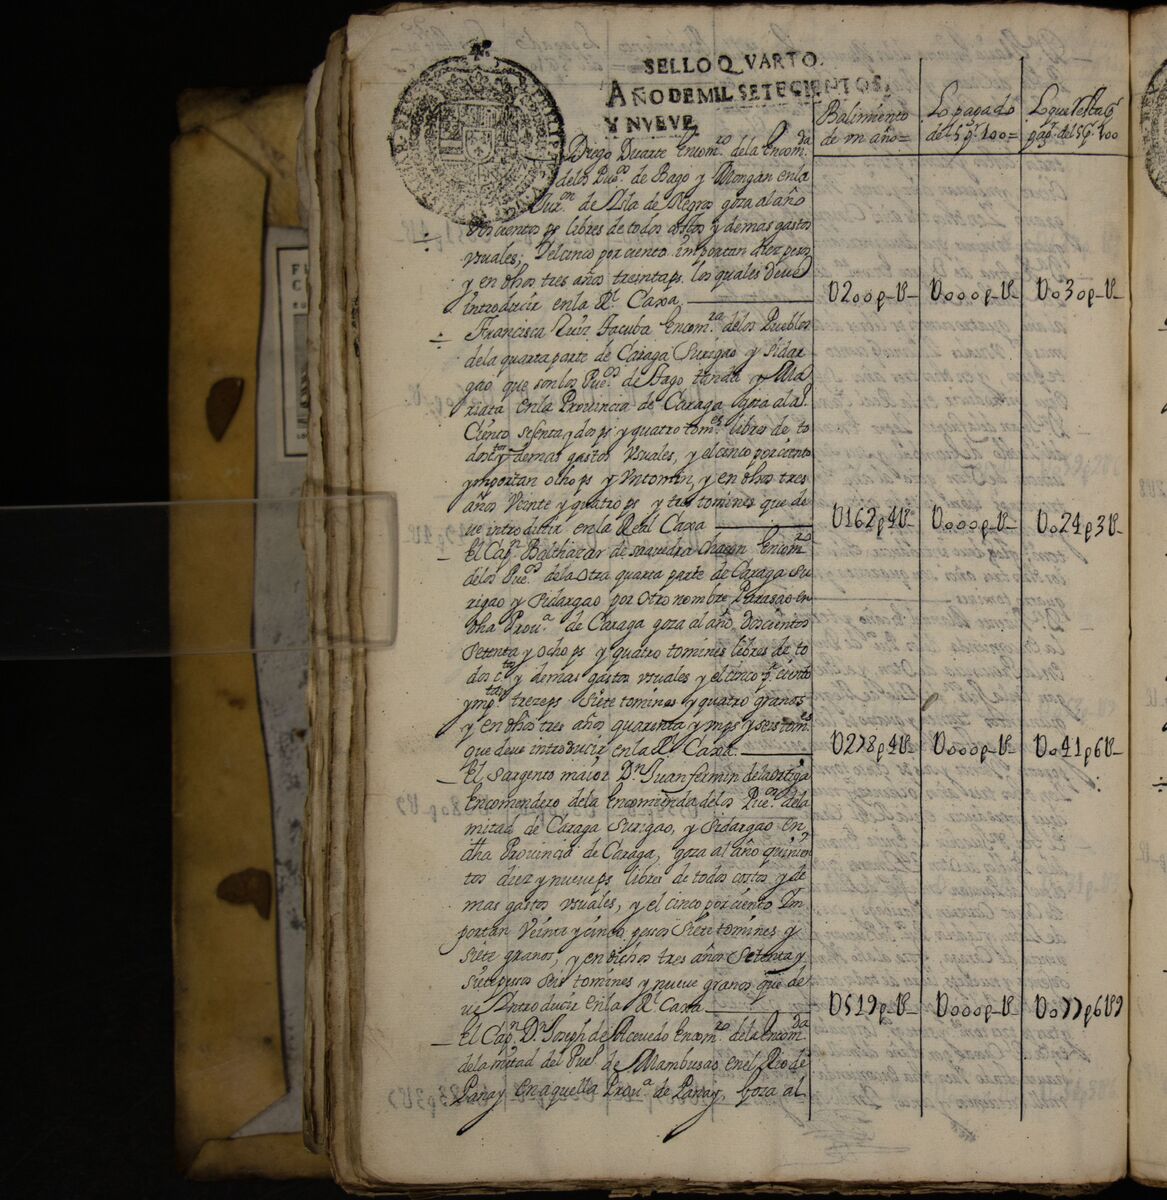 SELLO QVARTO.
AÑO DE MIL SETECIENTOS,
Y NVEVE
Balimiento
de un año=
Lo pagado
del 5 p.r 100=
Lo que restan
del 5 p.r 100
Diego Duarte Encom.ro de la Encom.da
de los Pue.os de Bago y Mongan en la
Jur.on de Isla de Negros goza al año
doscientos ps libres de todos costos y demas gastos
vsuales; del cinco por ciento importan diez pesos
y en dhos tres años treinta ps. los quales deve
introducir en la Rl. Caxa.
U200p-U- U000p-U- U030p-U-
Francisca Ruiz Encom.ra de los Pueblos
de la quarta parte de Caraga Surigao y Sidar
gao que son los Pue.os de
en la Provincia de Caraga goza al a.o
Ciento sesenta y dos ps y quatro tom.es libres de to
dos c.tos y demas gastos Vsuales, y el cinco por ciento
ymportan ocho ps y Vn tomin, y en dhos tres
años Veinte y quatro ps y tres tomines que de
ue introducir en la Real Caxa
U162p4U- U000p-U- U024p3U-
El Cap.n Balthazar de saavedra chacon Encom.ro
de los Pue.os de la Otra quarta parte de Caraga Su
rigao y Sidargao por Otro nombre Parasao en
dha Prou.a de Caraga goza al año doscientos
setenta y ocho ps y quatro tomines libres de to
dos c.tos y demas gastos vsuales y el cinco p.r ciento
ymp.tan trezeps siete tomines y quatro granos
y en dhos tres años quarenta y vn ps y seis tom.es
que deve introducir en la Rl. Caxa.
U278p4U- U000p-U- U041p6U-
El Sargento maior D.n Juan fermin de la ortiga
Encomendero de la Encomienda de los Pue.os de la
mitad de Caraga Surigao, y Sidargao en
dha Provincia de Caraga, goza al año quinien
tos diez y nueve ps libres de todos costos y de
mas gastos vsuales, y el cinco por ciento Im
portan Veinta y cinco pesos Siete tomines y
siete granos, y en dichos tres años Setenta y
siete pesos seis tomines y nueve granos que de
ue Introducir en la Rl. Caxa
U519p-U- U000p-U- U077p6U9
El Cap.n D.n Joseph de Aceuedo Encom.ro de la Encom.da
de la mitad del Pue.o de Mambusao en el Rio de
Panay en aquella Prou.a de Panay, goza al